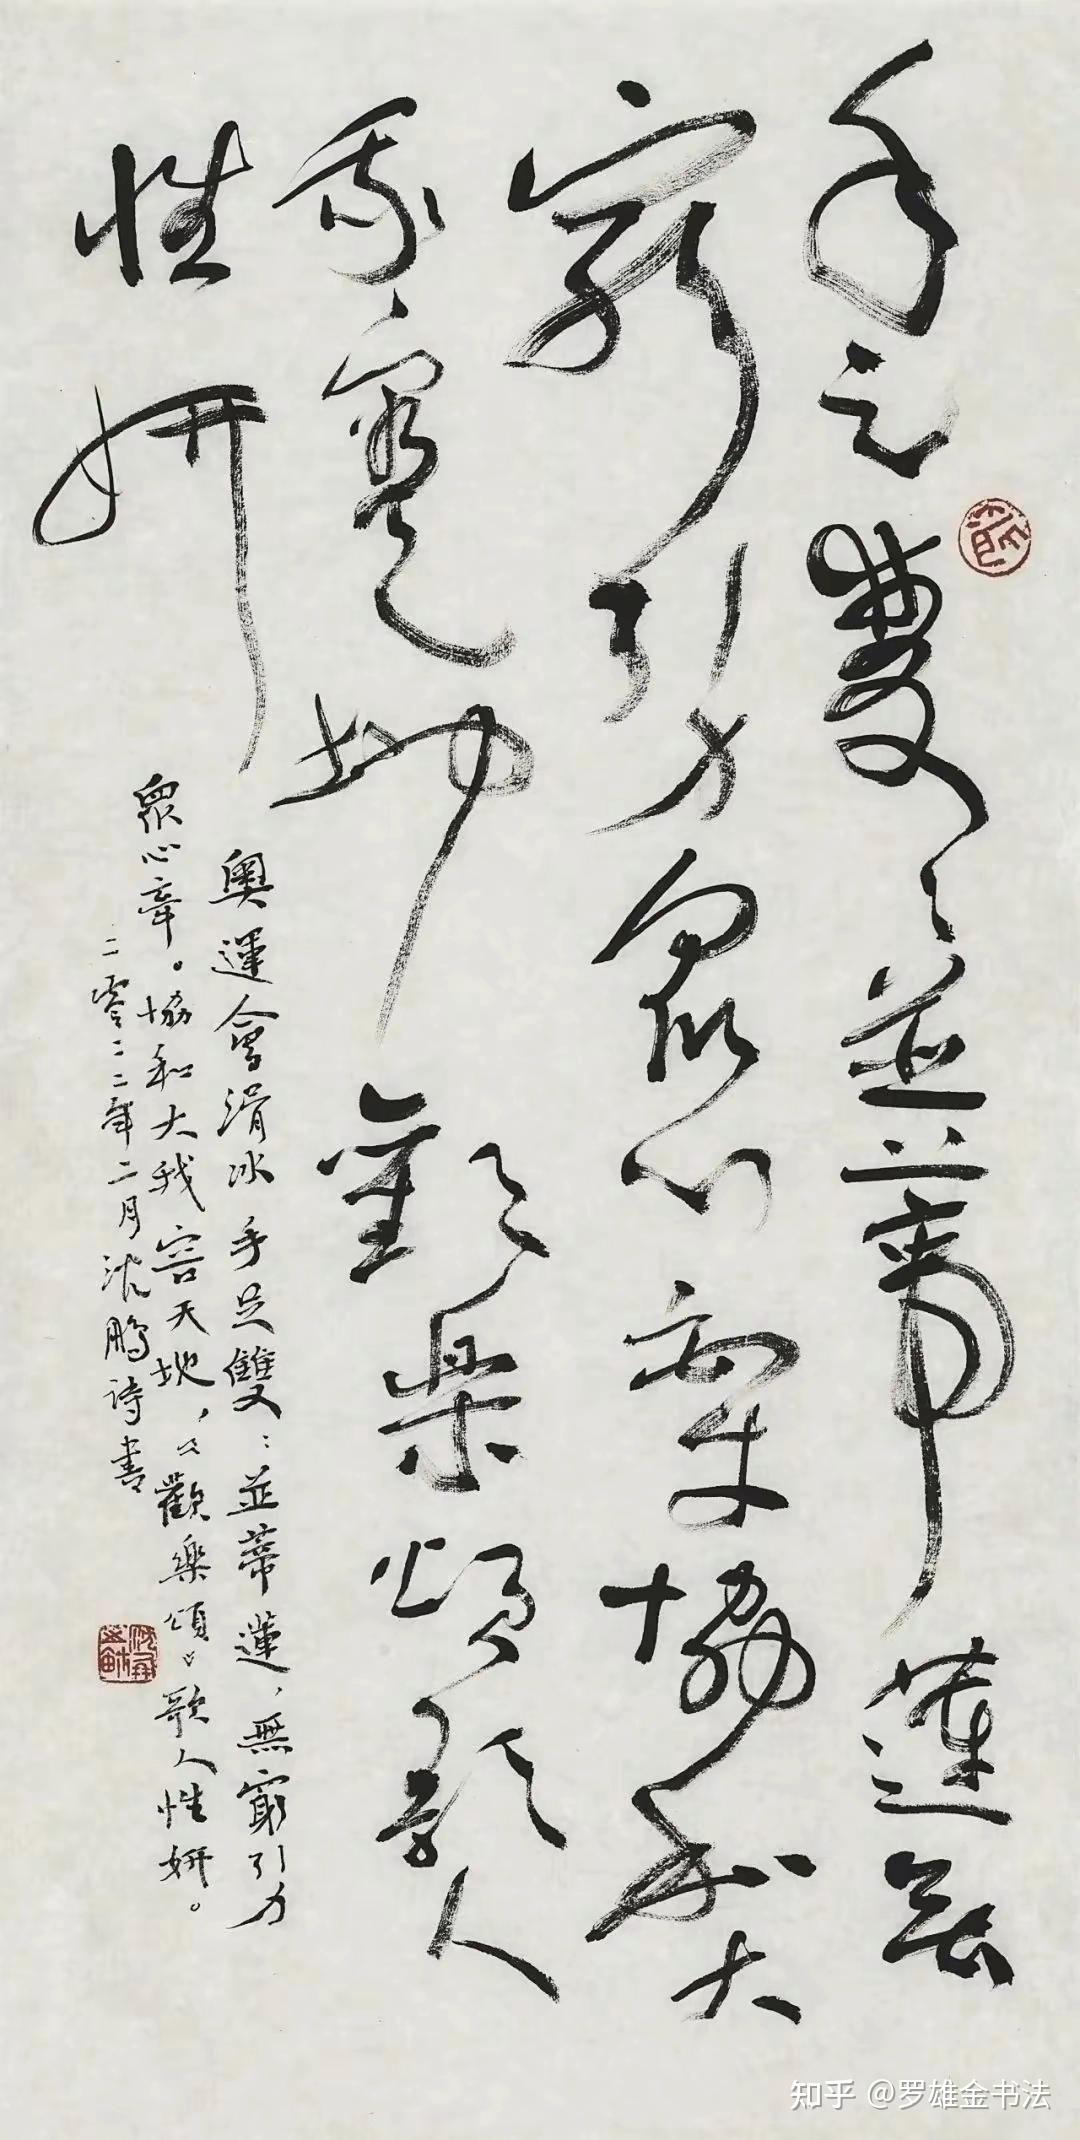 手足雙〻並蒂蓮無
窮引力眾心牽協和大
我容天地歡樂頌歌人
性妍
奧運會滑冰手足雙〻並蒂蓮，無窮引力
眾心牽。協和大我容天地，《歡樂頌》歌人性妍。
二零二二年二月沈鵬詩書
知乎 @罗雄金书法